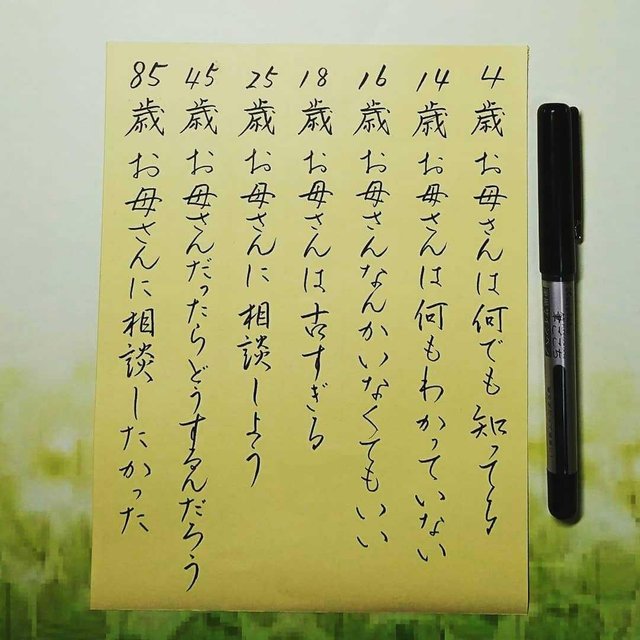 4歳 お母さんは何でも知ってる
14歳 お母さんは何もわかっていない
16歳 お母さんなんかいなくてもいい
18歳 お母さんは古すぎる
25歳 お母さんに相談しよう
45歳 お母さんだったらどうするんだろう
85歳 お母さんに相談したかった